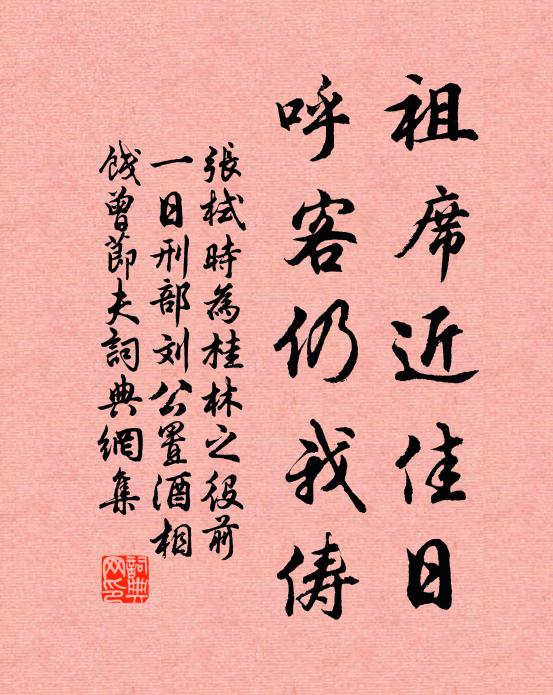 祖席近佳日
呼客仍我俦
張栻時為桂林之役前
一日刑部刘公置酒相
餞曾節夫詞典網集
詞典網印